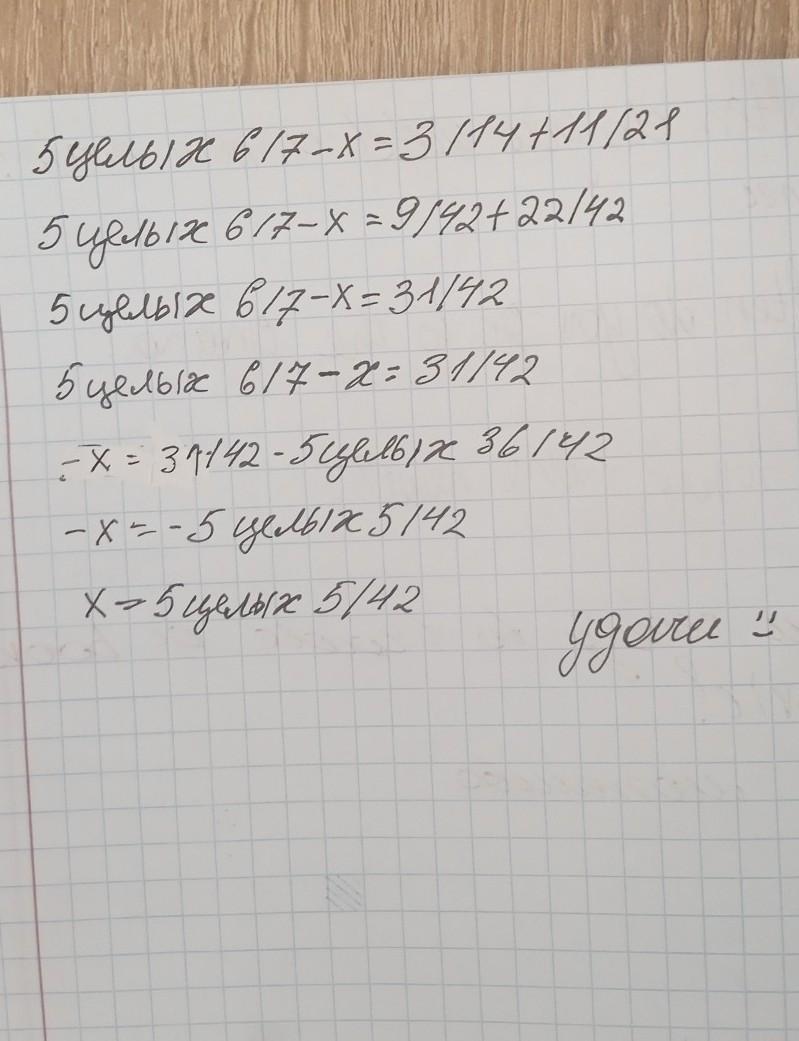 5 целых 6/7 - x = 3/14 + 11/21
5 целых 6/7 - x = 9/42 + 22/42
5 целых 6/7 - x = 31/42
5 целых 6/7 - x = 31/42
- x = 31/42 - 5 целых 36/42
- x = - 5 целых 5/42
x = 5 целых 5/42
удачи